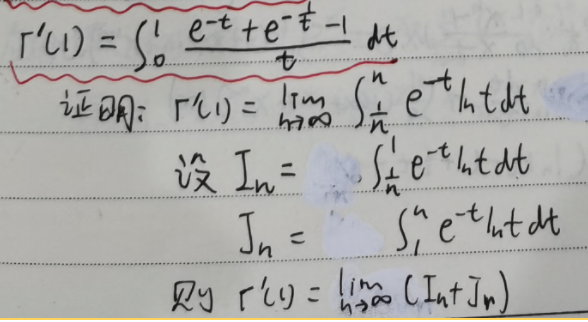 Γ'(1) = ∫₀¹ (e^{-t} + e^{-1/t} - 1)/t dt
证明: Γ'(1) = lim_{n→∞} ∫_{1/n}^{n} e^{-t} ln t dt
设 Iₙ = ∫_{1/n}^{1} e^{-t} ln t dt
Jₙ = ∫₁ⁿ e^{-t} ln t dt
则 Γ'(1) = lim_{n→∞} (Iₙ + Jₙ)